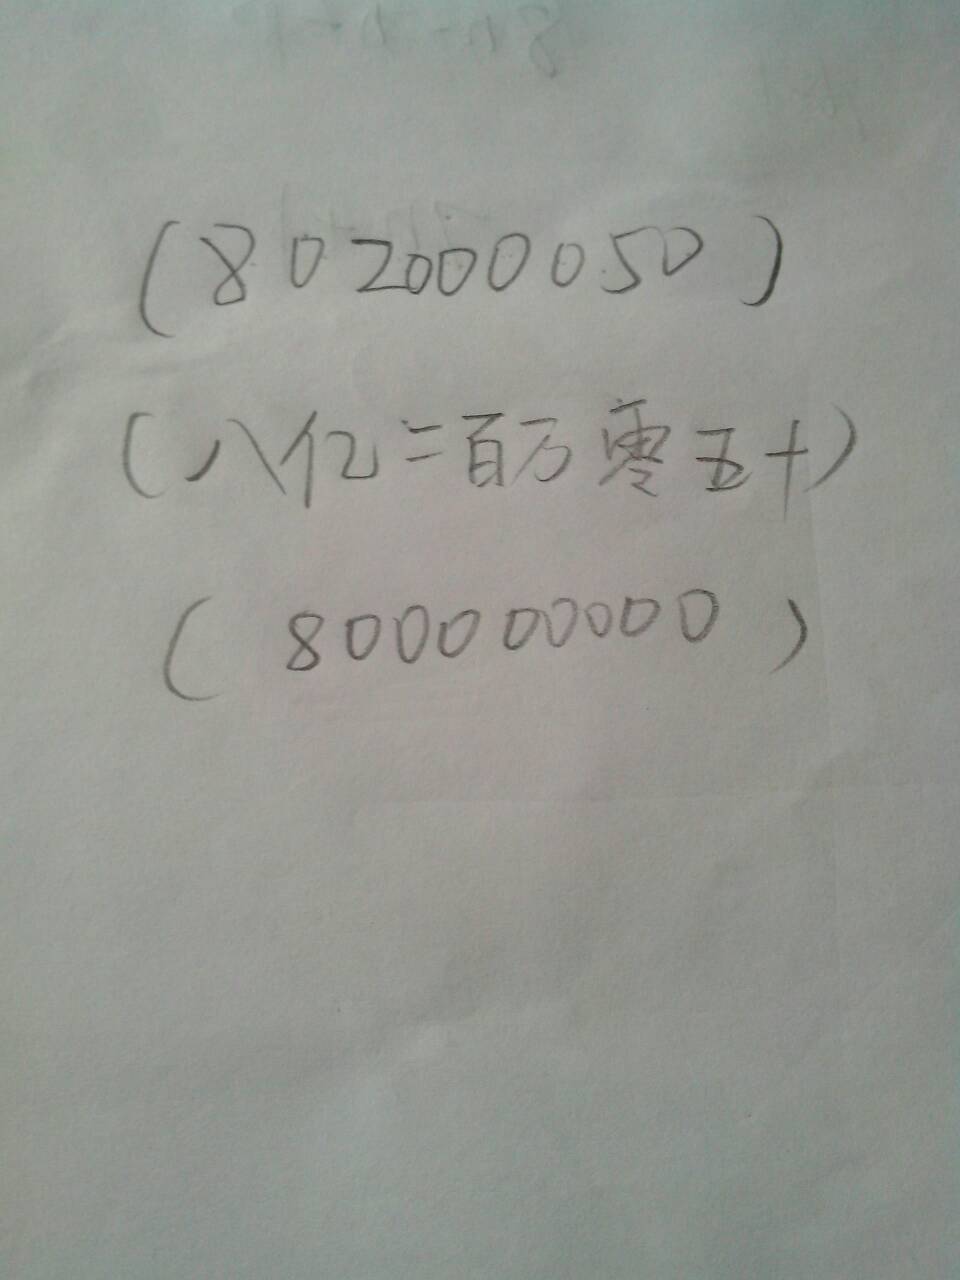 (802000050)
(八亿二百万零五十)
(800000000)